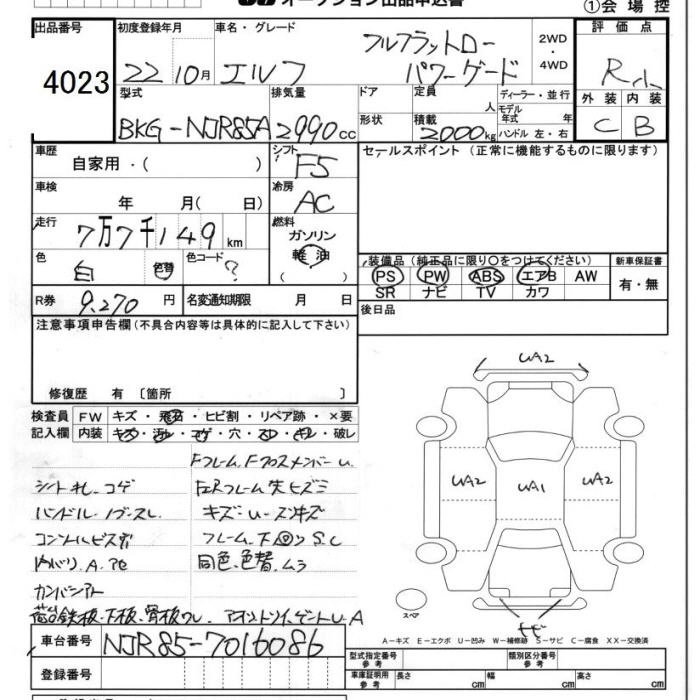 オークション出品申込書
①会場控
出品番号 初度登録年月 車名・グレード 評価点
4023 22 10月 エルフ フルフラットロー パワーゲード 2WD・4WD R
外装 内装
C B
型式 排気量 ドア 定員 人 ディーラー・並行
モデル年式 年
BKG-NJR85A 2990cc 形状 積載 2000kg ハンドル 左・右
車歴 自家用・( ) シフト F5 セールスポイント (正常に機能するものに限ります)
車検 年 月( 日) 冷房 AC
走行 7万7千149km 燃料 ガソリン 軽油 ( )
色 白 色替 色コード ?
装備品 (純正品に限り○をつけてください) 新車保証書
PS PW ABS エアB AW 有・無
SR ナビ TV カワ
R券 9,270円 名変通知期限 月 日
後日品
注意事項申告欄(不具合内容等は具体的に記入して下さい)
修復歴 有 〔箇所 〕
検査員 FW キズ・飛石・ヒビ割・リペア跡・×要
記入欄 内装 キズ・汚レ・コゲ・穴・スレ・キレ・破レ
Fフレーム、Fクロスメンバーu.
シートキレ、コゲ
ハンドル、ノブスレ
キズu
コンソールビス穴
フレーム、下回りS.C
同色、色替、ムラ
荷台鉄板、下板、骨板ワレ
UA2
UA2 UA1 UA2
スペア
A-キズ E-エクボ U-凹み W-補修跡 S-サビ C-腐食 XX-交換済
車台番号 NJR85-7016086
型式指定番号 参考 類別区分番号 参考
登録番号
車庫証明用 参考 長さ cm 幅 cm 高さ cm